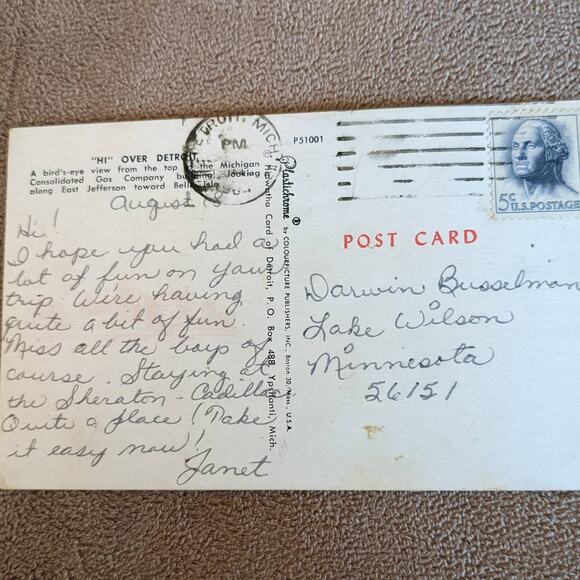 "HI" OVER DETROIT
A bird's-eye view from the top of the Michigan
Consolidated Gas Company building, looking
along East Jefferson toward Belle Isle
August
Hi!
I hope you had a
lot of fun on your
trip. We're having
quite a bit of fun.
Miss all the boys of
course. Staying at
the Sheraton - Cadillac
Quite a place! Take
it easy now!
Janet
DETROIT, MICH
PM
P51001
Plastichrome ® by COLOURPICTURE PUBLISHERS, INC., Boston 30, Mass., U.S.A.
Hiawatha Card of Detroit, P. O. Box 488, Ypsilanti, Mich.
5c U.S.POSTAGE
POST CARD
Darwin Busselman
Lake Wilson
Minnesota
56151